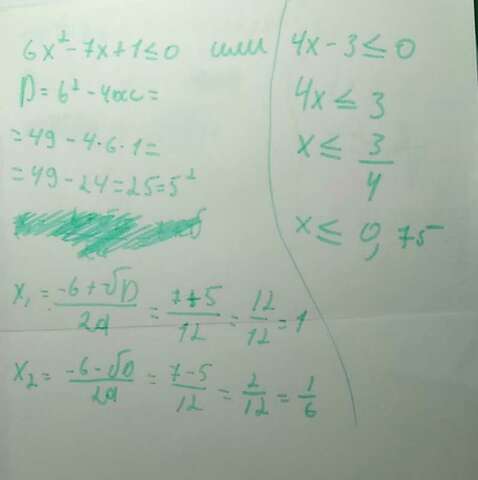 6x² - 7x + 1 ≤ 0 или
D = b² - 4ac =
= 49 - 4·6·1 =
= 49 - 24 = 25 = 5²
x₁ = (-b + √D)/2a = (7+5)/12 = 12/12 = 1
x₂ = (-b - √D)/2a = (7-5)/12 = 2/12 = 1/6
4x - 3 ≤ 0
4x ≤ 3
x ≤ 3/4
x ≤ 0,75